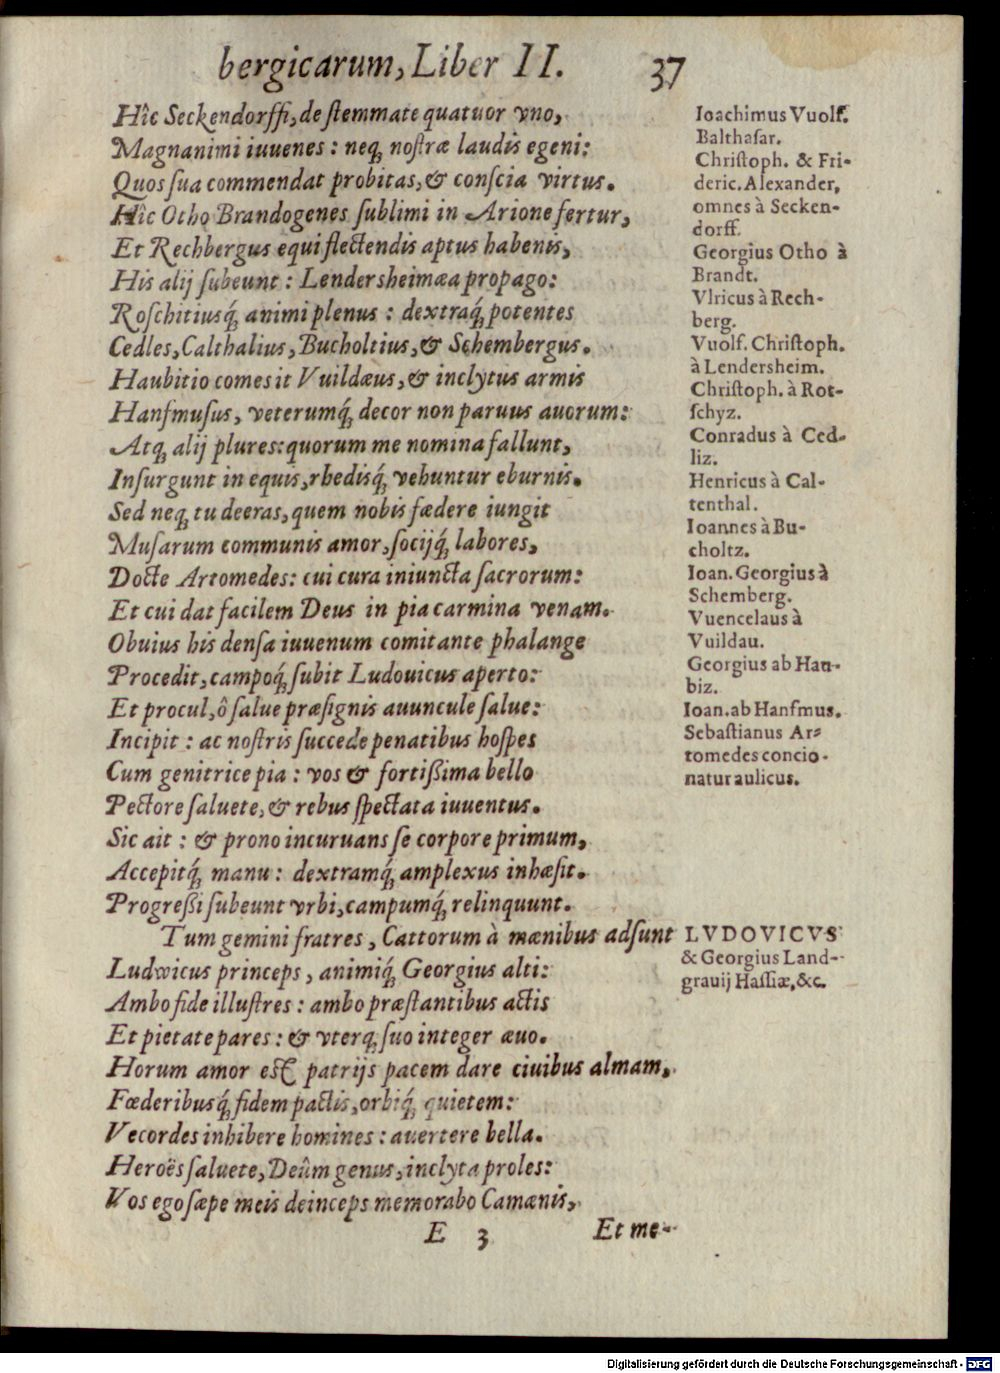 bergicarum, Liber II. 37
Hîc Seckendorffi, de ſtemmate quatuor vno,
Magnanimi iuuenes: neq́; noſtræ laudis egeni:
Quos ſua commendat probitas, & conſcia virtus.
Hîc Otho Brandogenes ſublimi in Arione fertur,
Et Rechbergus equi flectendis aptus habenis,
His alij ſubeunt: Lendersheimæa propago:
Roſchitiusq́; animi plenus: dextraq́; potentes
Cedles, Calthalius, Bucholtius, & Schembergus.
Haubitio comes it Vuildæus, & inclytus armis
Hanfmuſus, veterumq́; decor non paruus auorum:
Atq; alij plures: quorum me nomina fallunt,
Inſurgunt in equis, rhedisq́; vehuntur eburnis.
Sed neq; tu deeras, quem nobis fœdere iungit
Muſarum communis amor, ſocijq́; labores,
Docte Artomedes: cui cura iniuncta ſacrorum:
Et cui dat facilem Deus in pia carmina venam.
Obuius his denſa iuuenum comitante phalange
Procedit, campoq́; ſubit Ludouicus aperto:
Et procul, ô ſalue præſignis auuncule ſalue:
Incipit: ac noſtris ſuccede penatibus hoſpes
Cum genitrice pia: vos & fortißima bello
Pectore ſaluete, & rebus ſpectata iuuentus.
Sic ait: & prono incuruans ſe corpore primum,
Accepitq́; manu: dextramq́; amplexus inhæſit.
Progreßi ſubeunt vrbi, campumq́; relinquunt.
Tum gemini fratres, Cattorum à mœnibus adſunt
Ludwicus princeps, animiq́; Georgius alti:
Ambo fide illuſtres: ambo præſtantibus actis
Et pietate pares: & vterq; ſuo integer æuo.
Horum amor eſt patrijs pacem dare ciuibus almam,
Fœderibusq́; fidem pactis, orbiq́; quietem:
Vecordes inhibere homines: auertere bella.
Heroës ſaluete, Deûm genus, inclyta proles:
Vos ego ſæpe meis deinceps memorabo Camænis,
E 3 Et me-
Ioachimus Vuolf.
Balthaſar.
Chriſtoph. & Fri-
deric. Alexander,
omnes à Secken-
dorff.
Georgius Otho à
Brandt.
Vlricus à Rech-
berg.
Vuolf. Chriſtoph.
à Lendersheim.
Chriſtoph. à Rot-
ſchyz.
Conradus à Ced-
liz.
Henricus à Cal-
tenthal.
Ioannes à Bu-
choltz.
Ioan. Georgius à
Schemberg.
Vuencelaus à
Vuildau.
Georgius ab Hau-
biz.
Ioan. ab Hanfmus.
Sebaſtianus Ar-
tomedes concio-
natur aulicus.
LVDOVICVS
& Georgius Land-
grauij Haſſiæ, &c.
Digitalisierung gefördert durch die Deutsche Forschungsgemeinschaft - DFG